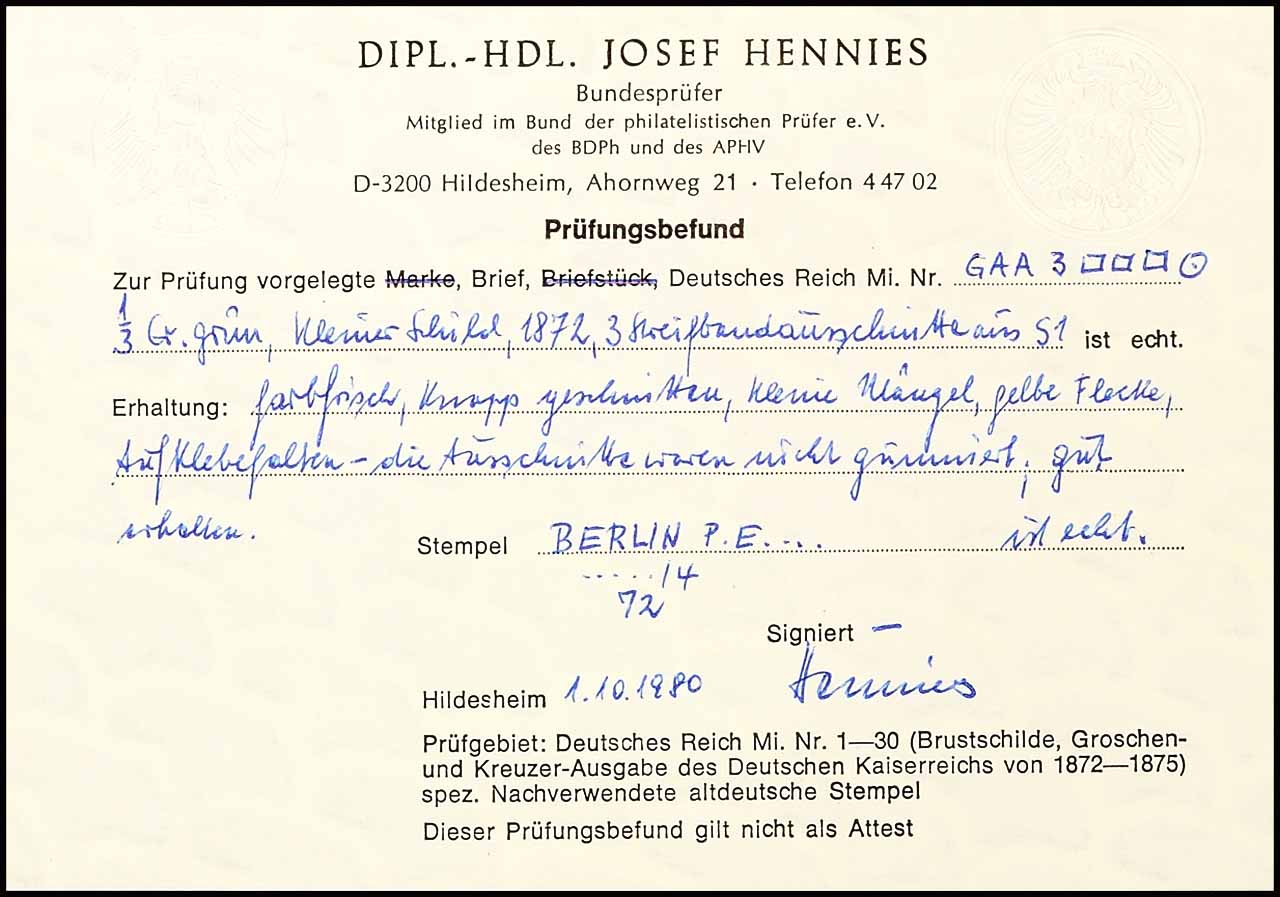 DIPL.-HDL. JOSEF HENNIES
Bundesprüfer
Mitglied im Bund der philatelistischen Prüfer e.V.
des BDPh und des APHV
D-3200 Hildesheim, Ahornweg 21 · Telefon 4 47 02
Prüfungsbefund
Zur Prüfung vorgelegte Marke, Brief, Briefstück, Deutsches Reich Mi. Nr. GAA 3 □□□ ⊙
1/3 Gr. grün, kleiner Schild, 1872, 3 Streifbandausschnitte aus S1 ist echt.
Erhaltung: farbfrisch, knapp geschnitten, kleine Mängel, gelbe Flecke,
Aufklebefalten – die Ausschnitte waren nicht gummiert, gut
erhalten.
Stempel BERLIN P.E.... ist echt.
...../4
72
Signiert —
Hennies
Hildesheim 1.10.1980
Prüfgebiet: Deutsches Reich Mi. Nr. 1—30 (Brustschilde, Groschen-
und Kreuzer-Ausgabe des Deutschen Kaiserreichs von 1872—1875)
spez. Nachverwendete altdeutsche Stempel
Dieser Prüfungsbefund gilt nicht als Attest